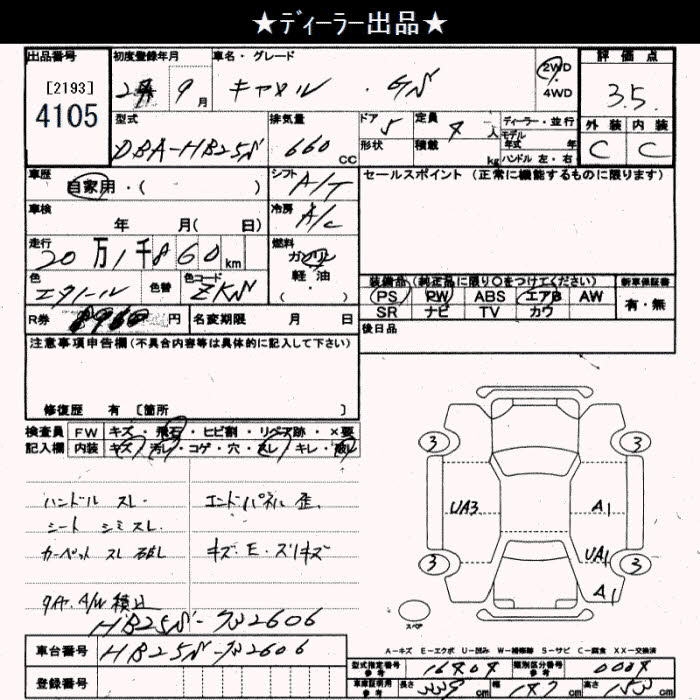 ★ディーラー出品★
出品番号 初度登録年月 車名・グレード 2WD ・ 4WD 評価点
[2193] 9月 キャロル ・ GS 3.5
4105
型式 排気量 ドア 定員 ディーラー・並行 外装 内装
DBA-HB25S 660 CC 5 4 人 モデル年式 年 C C
形状 積載 kg ハンドル 左・右
車歴 シフト セールスポイント (正常に機能するものに限ります)
自家用・( ) A/T
車検 冷房
年 月( 日) A/C
走行 燃料
20万1千860km ガソリン
軽油
・( )
色 色替 色コード 装備品 (純正品に限り○をつけてください) 新車保証書
ZKN PS PW ABS エアB AW 有・無
SR ナビ TV カワ
R券 円 名変期限 月 日 後日品
注意事項申告欄(不具合内容等は具体的に記入して下さい)
修復歴 有 [箇所 ]
検査員 FW キズ・飛石・ヒビ割・リペア跡・×要
記入欄 内装 キズ・汚レ・コゲ・穴・スレ・キレ・
3 3
ハンドル スレ エンドパネル 歪 UA3 A1
シート シミ スレ
カーペット スレ キズ E・スリキズ UA1
3 3
タイヤ、A/W 積込 A1
スペア
A-キズ E-エクボ U-凹み W-補修跡 S-サビ C-腐食 XX-交換済
車台番号
登録番号
型式指定番号 参考 類別区分番号 参考
車庫証明用 参考 長さ 339 cm 幅 147 cm 高さ cm